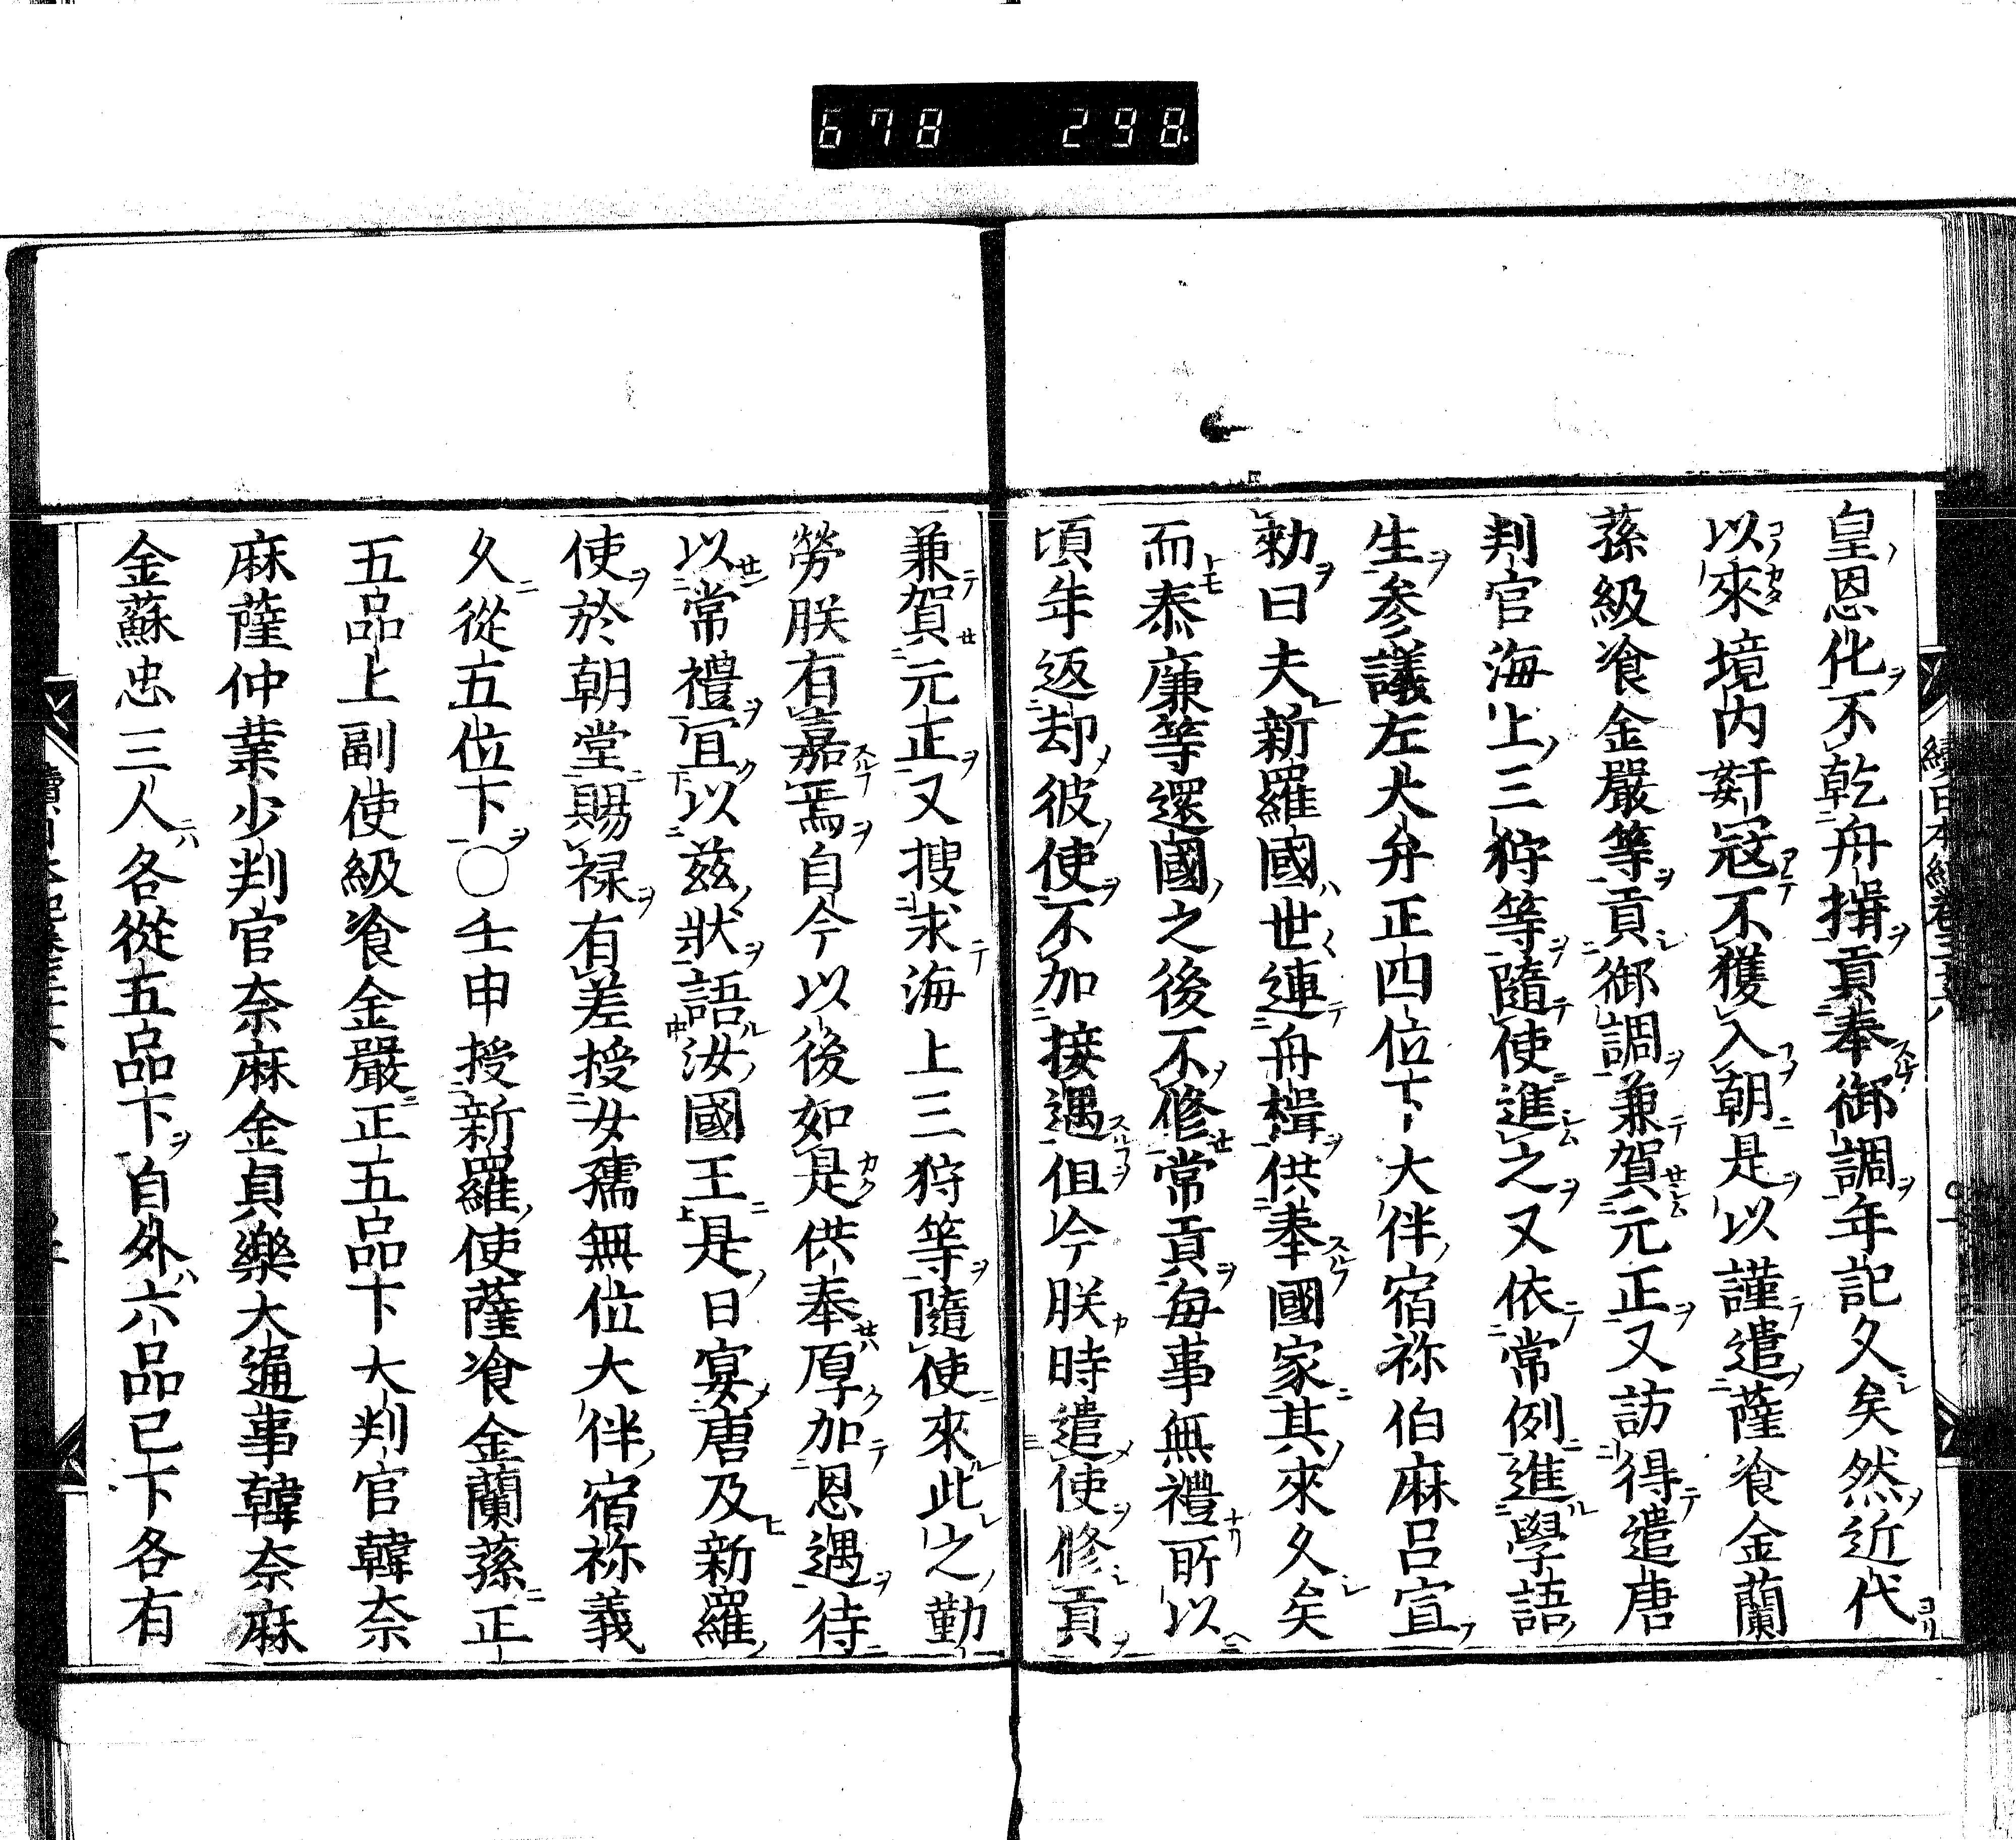 678 298
皇恩化不乾舟楫貢奉御調年記久矣然近代
以來境内奸寇不獲入朝是以謹遣薩飡金蘭
蓀級飡金嚴等貢御調兼賀元正又訪得遣唐
判官海上三狩等隨使進之又依常例進學語
生参議左大弁正四位下大伴宿祢伯麻呂宣
勅曰夫新羅國世連舟楫供奉國家其來久矣
而泰廉等還國之後不修常貢毎事無禮所以
頃年返却彼使不加接遇但今朕時遣使修貢
兼賀元正又搜求海上三狩等隨使來此之勤
勞朕有嘉焉自今以後如是供奉厚加恩遇待
以常禮宜以茲狀語汝國王是日宴唐及新羅
使於朝堂賜禄有差授女孺無位大伴宿祢義
久從五位下○壬申授新羅使薩飡金蘭蓀正
五品上副使級飡金嚴正五品下大判官韓奈
麻薩仲業少判官奈麻金貞樂大通事韓奈麻
金蘇忠三人各從五品下自外六品已下各有